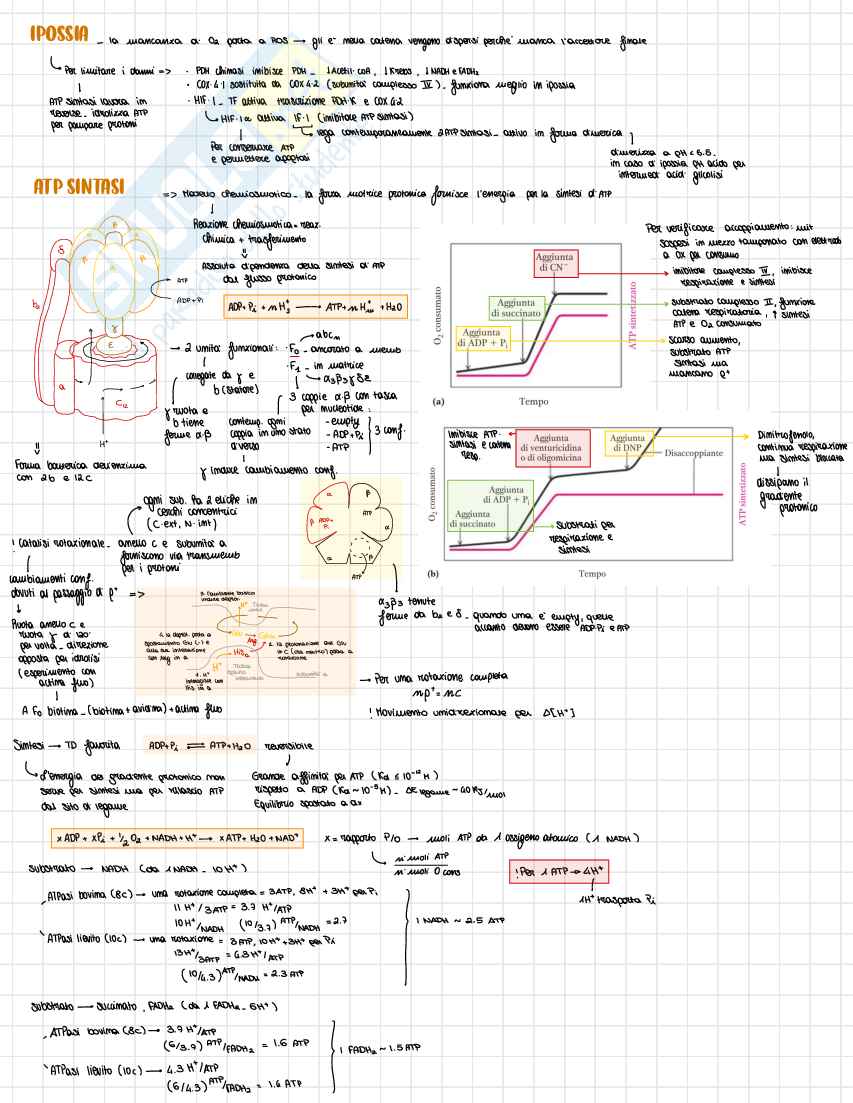 IPOSSIA
_ la mancanza di O₂ porta a ROS → gli e⁻ nella catena vengono dispersi perché manca l'accettore finale
Per limitare i danni =>
· PDH chinasi inibisce PDH _ ↓Acetil-CoA, ↓Krebs, ↓NADH e FADH₂
· COX 4·1 sostituita da COX 4·2 (subunità complesso IV) _ funziona meglio in ipossia
· HIF·1 _ TF attiva trascrizione PDH·K e COX 4·2
HIF·1α attiva IF·1 (inibitore ATP sintasi)
lega contemporaneamente 2 ATP sintasi _ attivo in forma dimerica
ATP sintasi lavora in
reverse _ idrolizza ATP
per pompare protoni
Per conservare ATP
e permettere apoptosi
dimerizza a pH < 6.5 _
in caso di ipossia pH acido per
intermedi acidi glicolisi
ATP SINTASI
=> Modello chemiosmotico _ la forza motrice protonica fornisce l'energia per la sintesi di ATP
Reazione chemiosmotica = reaz.
chimica + trasferimento
Assoluta dipendenza della sintesi di ATP
dal flusso protonico
ADP + Pi + nH⁺ → ATP + nH⁺ + H₂O
β
α
δ
b₂
ATP
ADP + Pi
γ
ε
a
C₁₂
H⁺
Forma batterica dell'enzima
con 2b e 12c
→ 2 unità funzionali:
· F₀ _ ancorato a memb
abcₙ
· F₁ _ in matrice
α₃β₃γδε
collegate da γ e
b (statore)
3 coppie α·β con tasca
per nucleotide:
γ ruota e
b tiene
ferme α·β
contemp. ogni
coppia in uno stato
diverso
- empty
- ADP+Pi
- ATP
3 conf.
γ induce cambiamento conf.
Per verificare accoppiamento: mit
sospesi in mezzo tamponato con elettrodi
a ox per consumo
inibitore complesso IV, inibisce
respirazione e sintesi
substrato complesso II, funziona
catena respiratoria, ↑ sintesi
ATP e O₂ consumato
scarso aumento,
substrato ATP
sintasi ma
mancano p⁺
O₂ consumato
Aggiunta
di ADP + Pi
Aggiunta
di succinato
Aggiunta
di CN⁻
ATP sintetizzato
(a)
Tempo
Inibisce ATP·
sintasi e catena
resp.
Aggiunta
di venturicidina
o di oligomicina
Aggiunta
di DNP
Disaccoppiante
Aggiunta
di ADP + Pi
Aggiunta
di succinato
O₂ consumato
ATP sintetizzato
substrati per
respirazione e
sintesi
(b)
Tempo
Dinitrofenolo,
continua respirazione
ma sintesi bloccata
dissipano il
gradiente
protonico
ogni sub. ha 2 eliche in
cerchi concentrici
(C·ext, N·int)
! Catalisi rotazionale _ anello c e subunità a
forniscono via transmemb
per i protoni
cambiamenti conf.
dovuti al passaggio di p⁺ =>
Ruota anello c e
ruota γ di 120°
per volta _ direzione
opposta per idrolisi
(esperimento con
actina fluo)
A F₀ biotina _ (biotina + avidina) + actina fluo
α
β
ATP
β ADP+Pi
α
α
β
ATP
α₃β₃ tenute
ferme da b₂ e δ _ quando una è empty, quelle
accanto devono essere ADP·Pi e ATP
→ Per una rotazione completa
np⁺ = nc
! Movimento unidirezionale per Δ[H⁺]
Sintesi → TD favorita ADP + Pi ⇌ ATP + H₂O reversibile
L'energia del gradiente protonico non
serve per sintesi ma per rilascio ATP
dal sito di legame
Grande affinità per ATP (Kd ≤ 10⁻¹² M)
rispetto a ADP (Kd ~ 10⁻⁵ M) _ ΔE legame ~ 40 KJ/mol
Equilibrio spostato a dx
x ADP + xPi + ½ O₂ + NADH + H⁺ → x ATP + H₂O + NAD⁺
x = rapporto P/O → moli ATP da 1 ossigeno atomico (1 NADH)
n° moli ATP
n° moli O cons
! Per 1 ATP → 4H⁺
1H⁺ trasporta Pi
substrato → NADH (da 1 NADH _ 10 H⁺)
ATPasi bovina (8c) → una rotazione completa = 3 ATP, 8H⁺ + 3H⁺ per Pi
11 H⁺/3ATP = 3.7 H⁺/ATP
10 H⁺/NADH (10/3.7) ATP/NADH = 2.7
ATPasi lievito (10c) → una rotazione = 3 ATP, 10H⁺ + 3H⁺ per Pi
13H⁺/3ATP = 4.3 H⁺/ATP
(10/4.3) ATP/NADH = 2.3 ATP
1 NADH ~ 2.5 ATP
substrato → succinato, FADH₂ (da 1 FADH₂ _ 6H⁺)
ATPasi bovina (8c) → 3.7 H⁺/ATP
(6/3.7) ATP/FADH₂ = 1.6 ATP
ATPasi lievito (10c) → 4.3 H⁺/ATP
(6/4.3) ATP/FADH₂ = 1.4 ATP
1 FADH₂ ~ 1.5 ATP